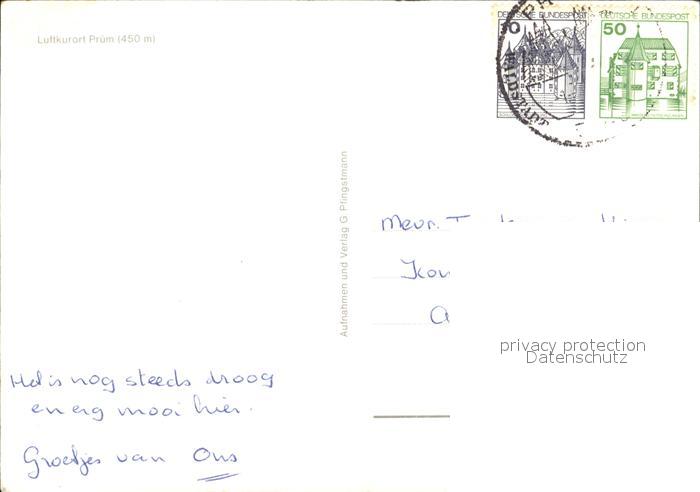 Luftkurort Prüm (450 m)
DEUTSCHE BUNDESPOST
DEUTSCHE BUNDESPOST
50
Aufnahmen und Verlag G Pfingstmann
Mevr.
privacy protection
Datenschutz
Het is nog steeds droog
en erg mooi hier.
Groetjes van Ons